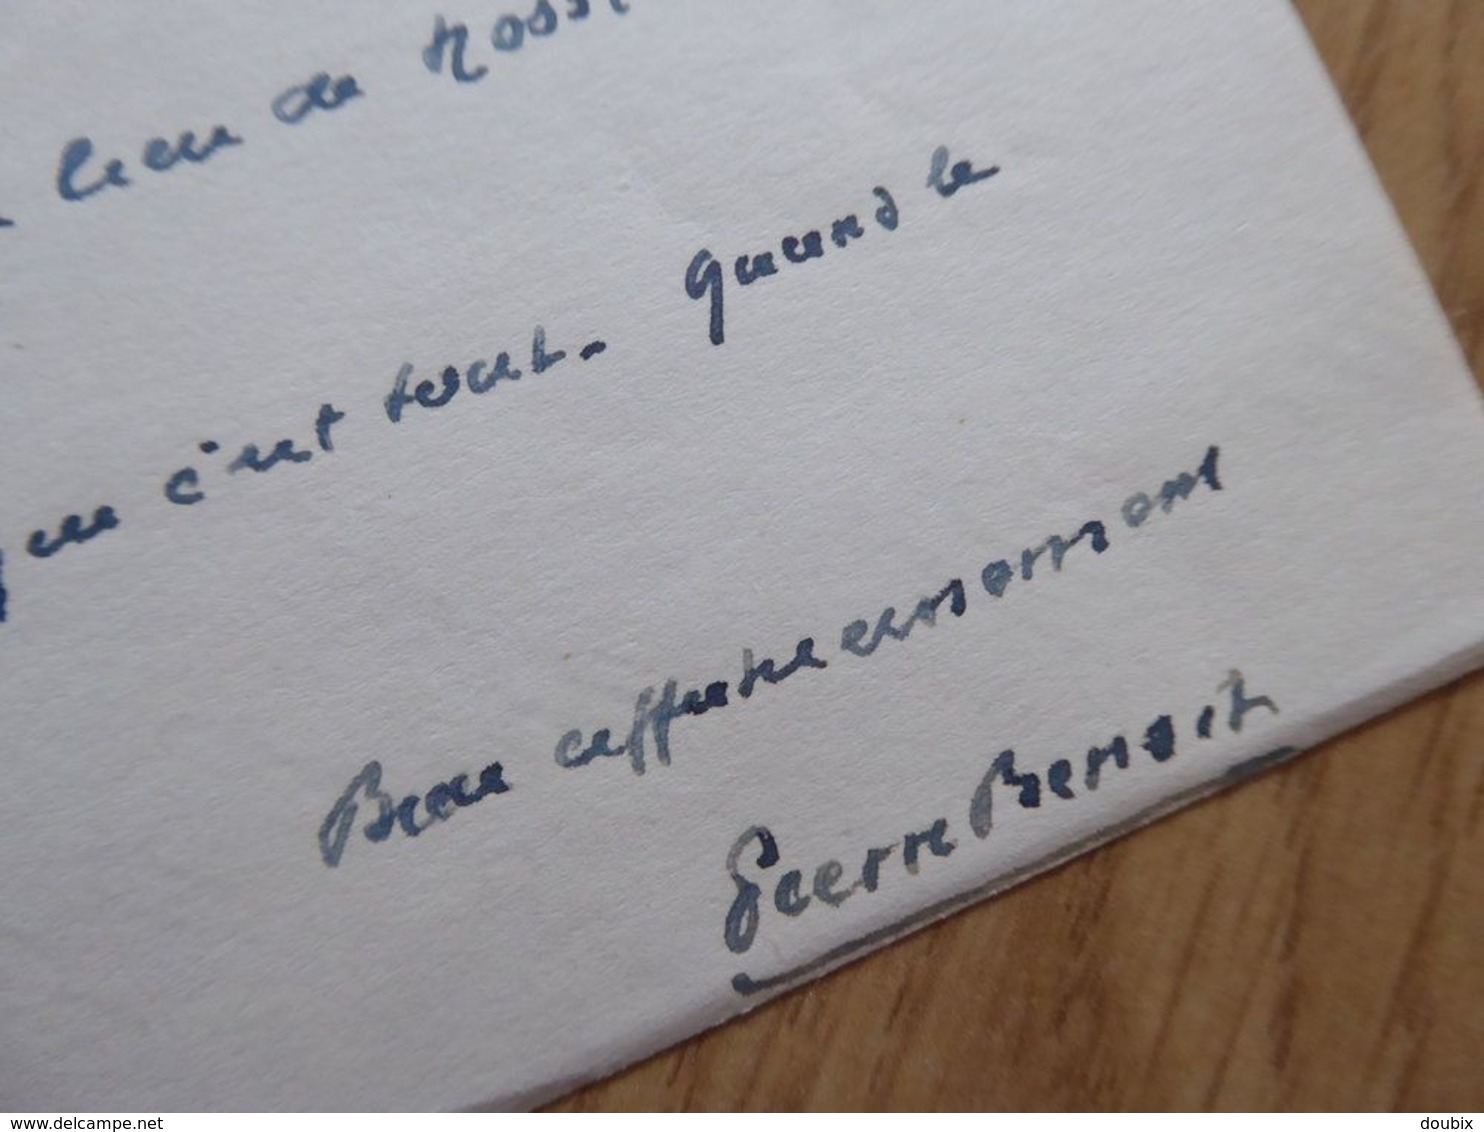 lieu de
que c'est tout. Quand le
Bien affectueusement
Pierre Benoit
www.delcampe.net
doubix